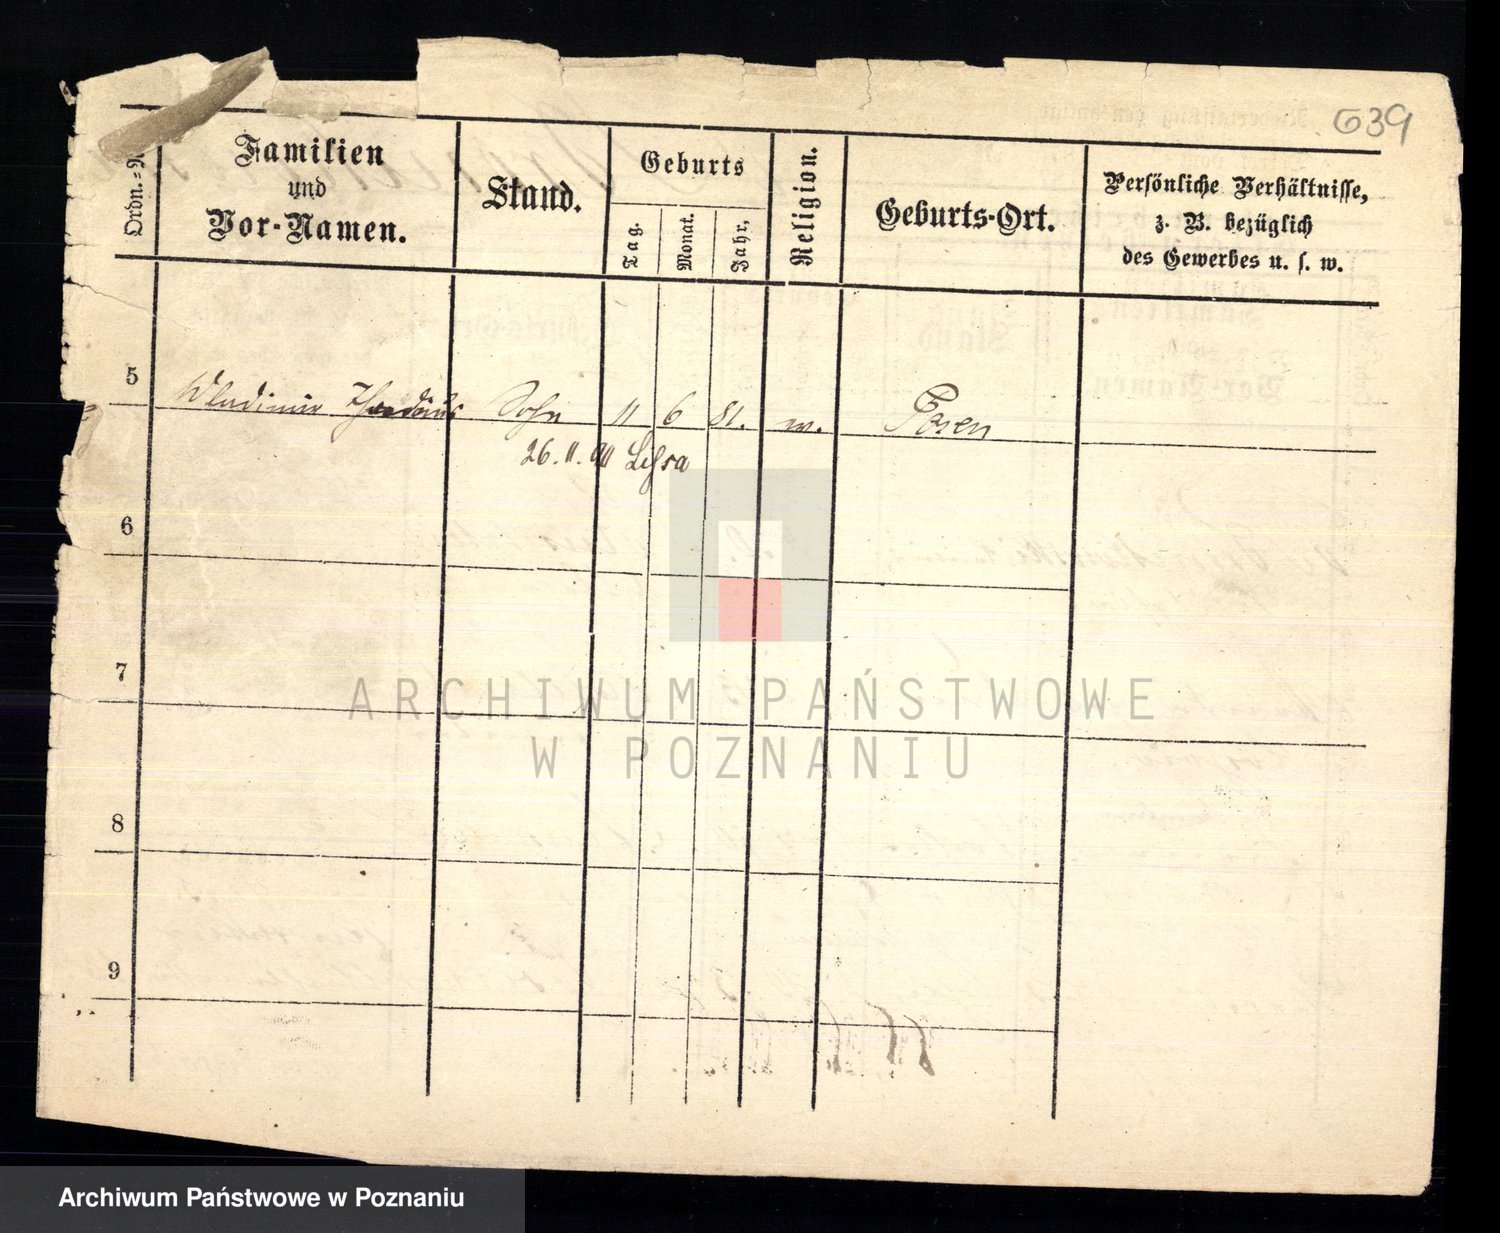 639
Ordn.=N
Familien
und
Vor-Namen.
Stand.
Geburts
Tag.
Monat.
Jahr.
Religion.
Geburts-Ort.
Persönliche Verhältnisse,
z. B. bezüglich
des Gewerbes u. s. w.
5 Wladimir Thadäus Sohn 11 6 81. w. Posen
26. 11. Lissa
6
7
8
9
ARCHIWUM PAŃSTWOWE
W POZNANIU
Archiwum Państwowe w Poznaniu